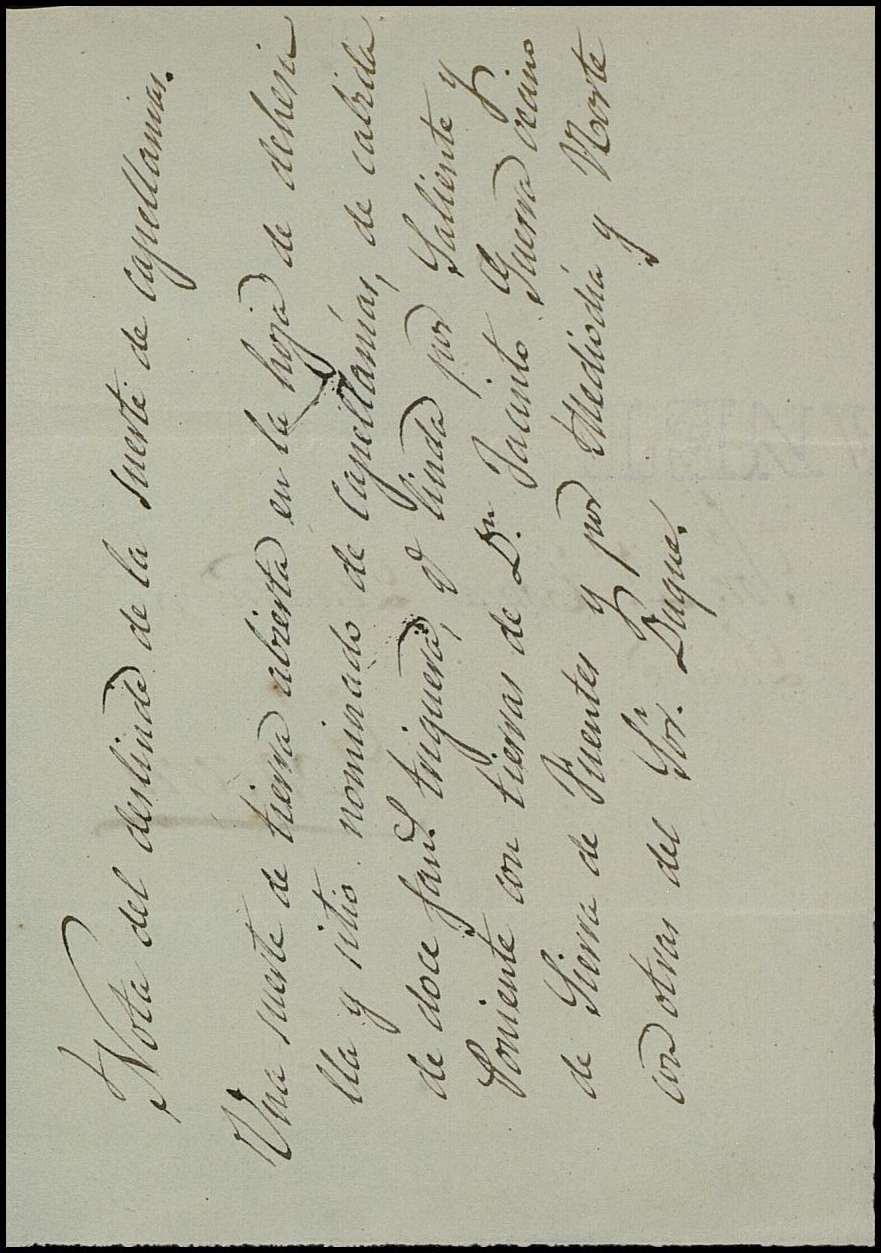 Nota del deslinde de la suerte de Capellanias.
Una suerte de tierra abierta en la hoja de dehesi
lla y sitio nominado de Capellanías, de cabida
de doce fan.s trigueras, q.e linda por Saliente y
Poniente con tierras de D.n Jacinto Guerra vecino
de Sierra de Fuentes y por Mediodia y Norte
con otras del Sor. Duque.